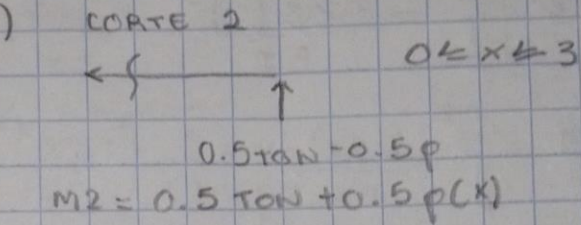 ) CORTE 2
0 ≤ x ≤ 3
0.5 TON - 0.5 p
M2 = 0.5 TON + 0.5 p(x)